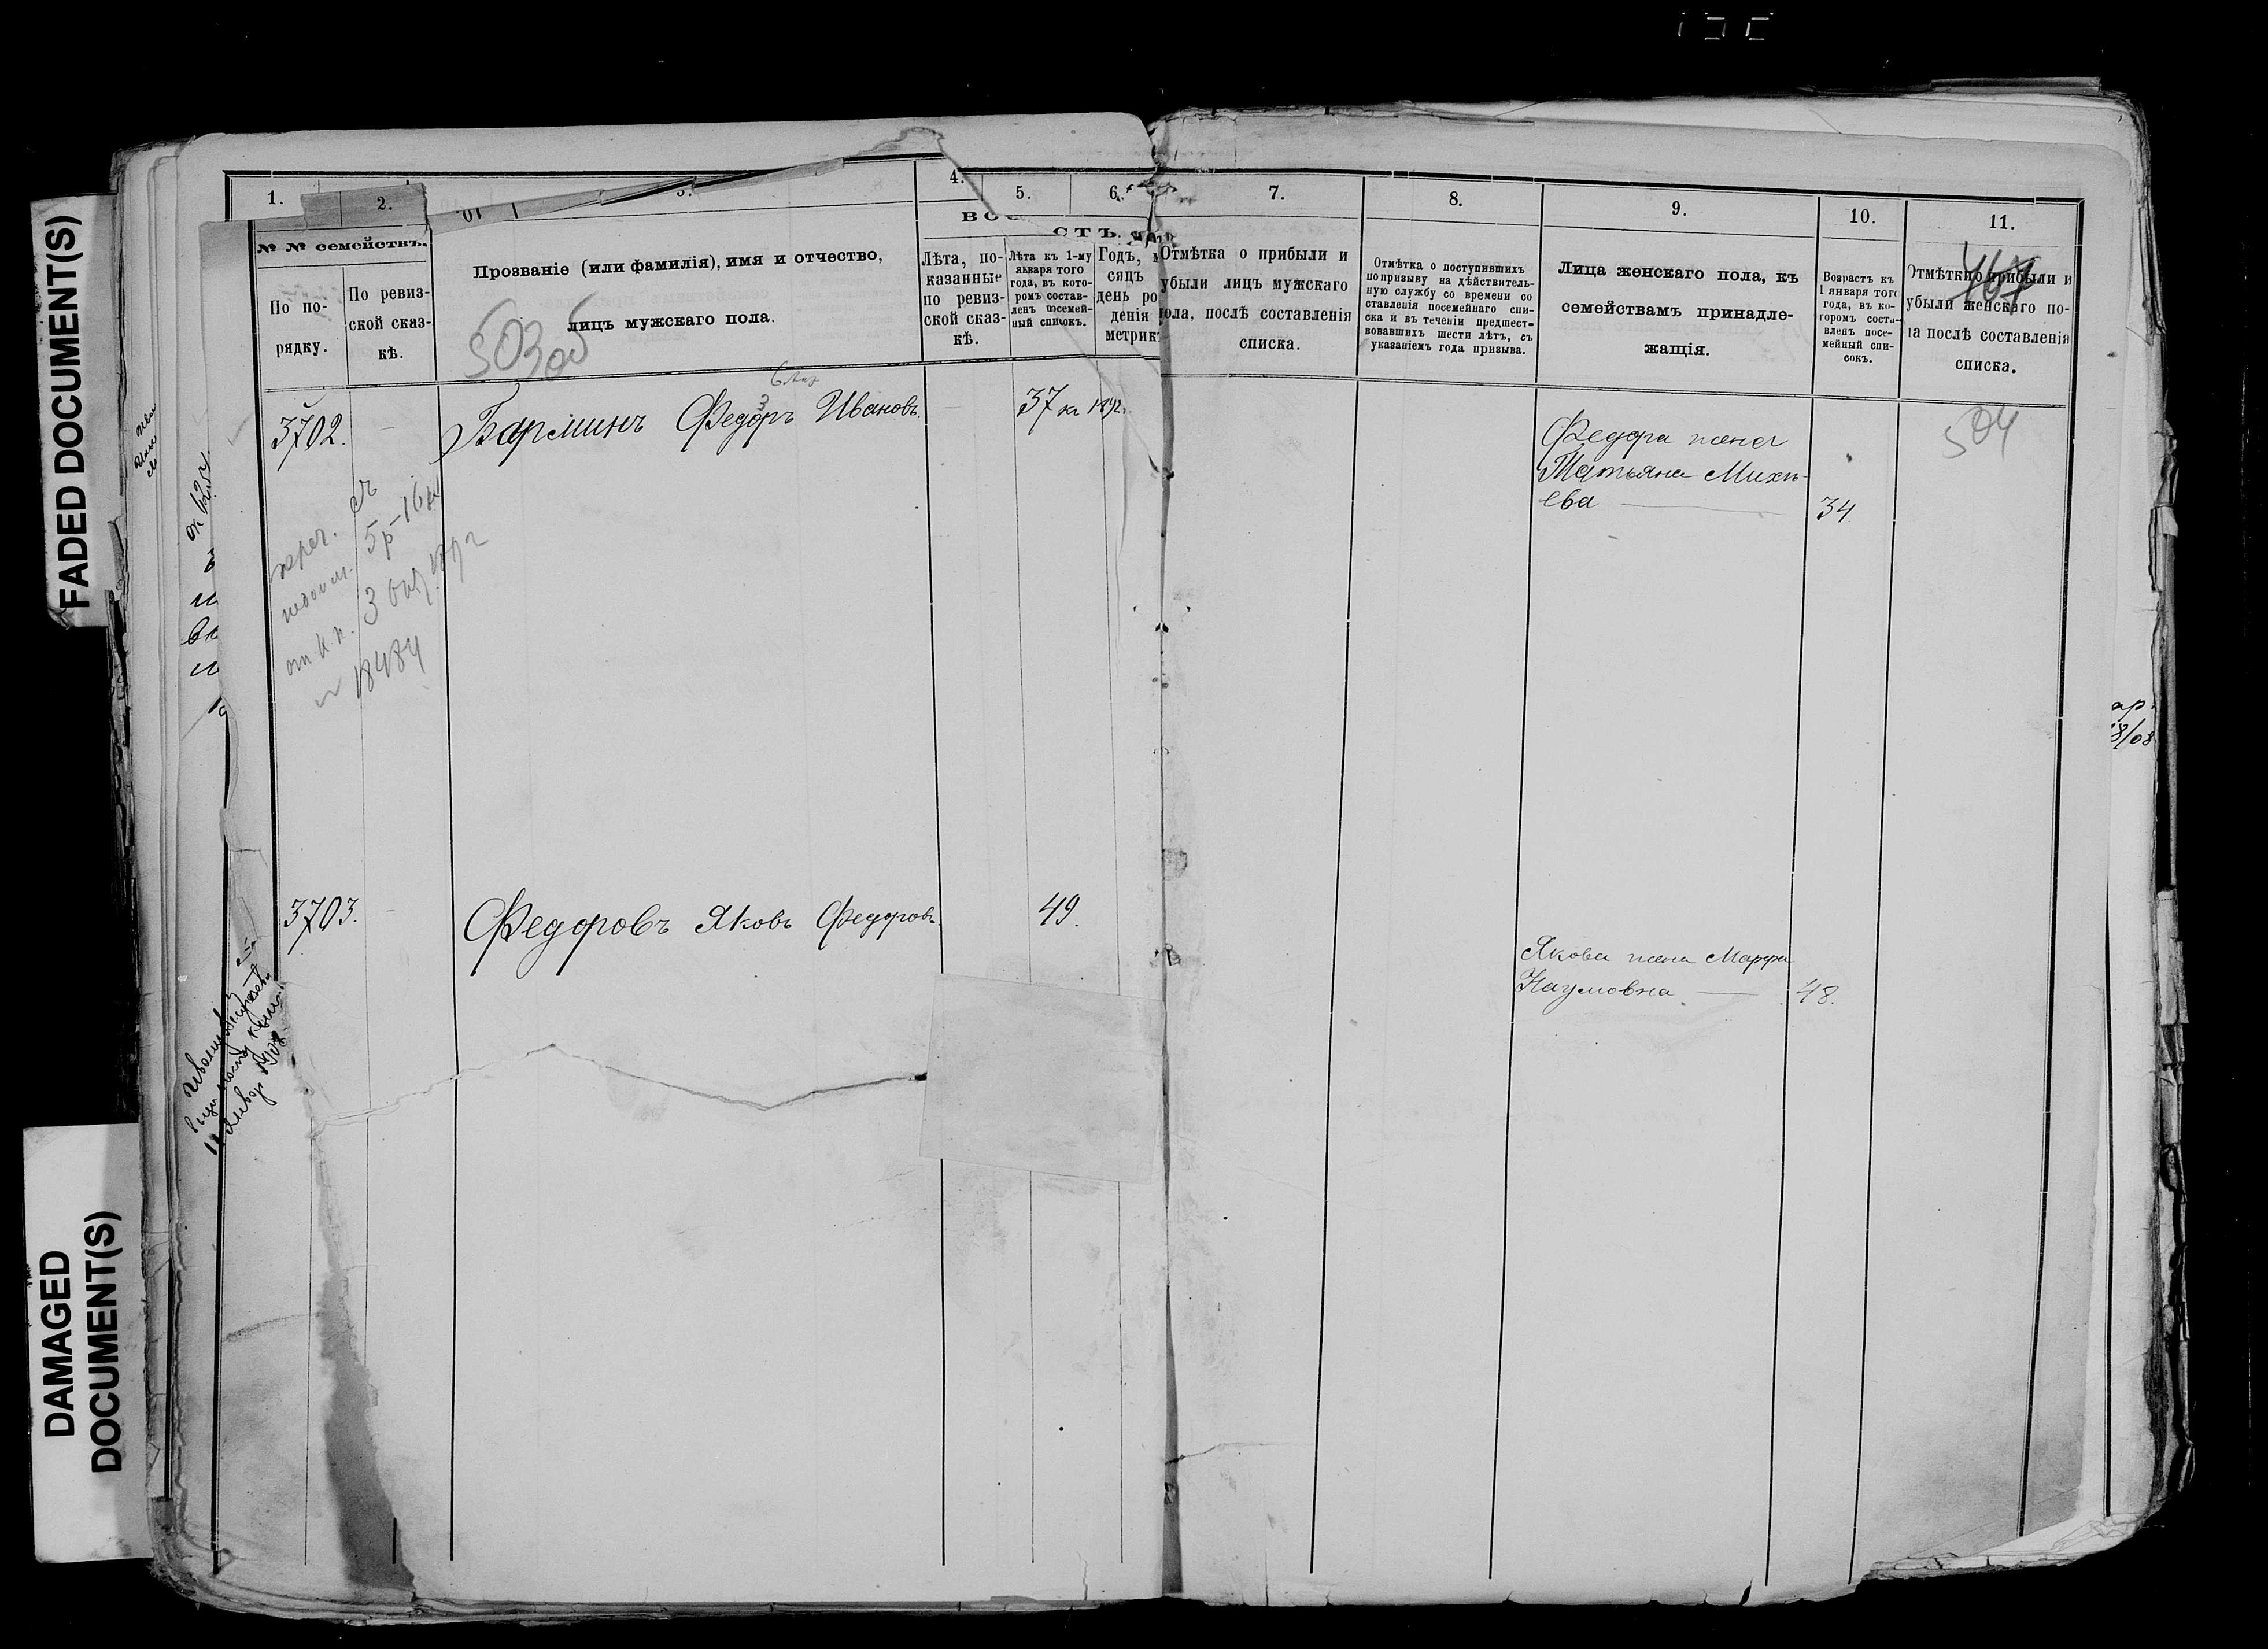 FADED DOCUMENT(S)
DAMAGED
DOCUMENT(S)
1.
2.
3.
4.
5.
6.
7.
8.
9.
10.
11.
№ № семействъ.
По по-
рядку.
По ревиз-
ской сказ-
кѣ.
Прозваніе (или фамилія), имя и отчество,
лицъ мужскаго пола.
503 об
Лѣта, по-
казанные
по ревиз-
ской сказ-
кѣ.
Лѣта къ 1-му
января того
года, въ кото-
ромъ состав-
ленъ посемей-
ный списокъ.
Годъ,
сяцъ
день ро
денія
метрик
Отмѣтка о прибыли и
убыли лицъ мужскаго
пола, послѣ составленія
списка.
Отмѣтка о поступившихъ
по призыву на дѣйствитель-
ную службу со времени со
ставленія посемейнаго спи-
ска и въ теченіи предшест-
вовавшихъ шести лѣтъ, съ
указаніемъ года призыва.
Лица женскаго пола, къ
семействамъ принадле-
жащія.
Возрастъ къ
1 января того
года, въ ко-
торомъ соста-
вленъ посе-
мейный спи-
сокъ.
Отмѣтки о прибыли и
убыли женскаго по-
ла послѣ составленія
списка.
467
504
3702.
Барминъ Федоръ Ивановъ.
37 к 1892
Федора жена
Татьяна Михѣ-
ева
34
5р-16к
18484
3703.
Федоровъ Яковъ Федоровъ.
49.
Якова жена Марфа
Наумовна
48.